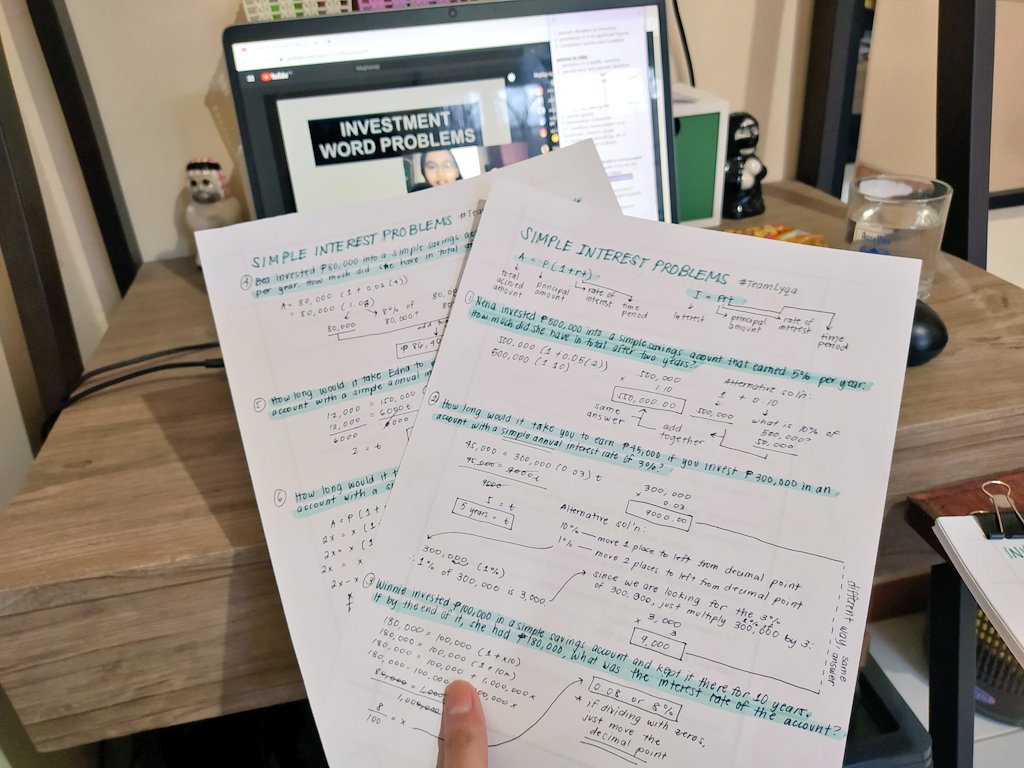 YouTube
INVESTMENT
WORD PROBLEMS
SIMPLE INTEREST PROBLEMS
④ Bea invested ₱80,000 into a simple savings
per year. How much did she have in total
A = 80,000 (1 + 0.02 (4))
80,000 (1.08)
80,000
8% of
80,000?
⑤ How long would it take Edna to
account with a simple annual in
12,000 = 150,000
12,000 = 6000t
6000
2 = t
⑥ How long would it t
account with a s
A = P (1 +
2x = x (1
2x = x (1
2x = x
2x - x
SIMPLE INTEREST PROBLEMS #TeamLyqa
A = P(1+rt)
total accrued amount
principal amount
rate of interest
time period
I = Prt
interest
principal amount
rate of interest
time period
① Nena invested ₱500,000 into a simple savings account that earned 5% per year.
How much did she have in total after two years?
500,000 (1+0.05(2))
500,000 (1.10)
500,000
x 1.10
550,000.00
same answer
add together
Alternative sol'n:
1 + 0.10
500,000
what is 10% of
500,000?
50,000
② How long would it take you to earn ₱45,000 if you invest ₱300,000 in an
account with a simple annual interest rate of 3%?
45,000 = 300,000 (0.03) t
45,000 = 9000t
9000
5 = t
5 years = t
300,000
x 0.03
9000.00
Alternative sol'n:
10% — move 1 place to left from decimal point
1% — move 2 places to left from decimal point
300,000 (1%)
1% of 300,000 is 3,000
since we are looking for the 3%
of 300,000, just multiply 1% of 300,000 by 3:
3,000
x 3
9,000
different way, same answer
③ Winnie invested ₱100,000 in a simple savings account and kept it there for 10 years.
If by the end of it, she had ₱180,000. what was the interest rate of the account?
180,000 = 100,000 (1+x10)
180,000 = 100,000 (1+10x)
180,000 = 100,000 + 1,000,000x
180,000 - 100,000
8
100 = x
0.08 or 8%
* if dividing with zeros,
just move the
decimal point